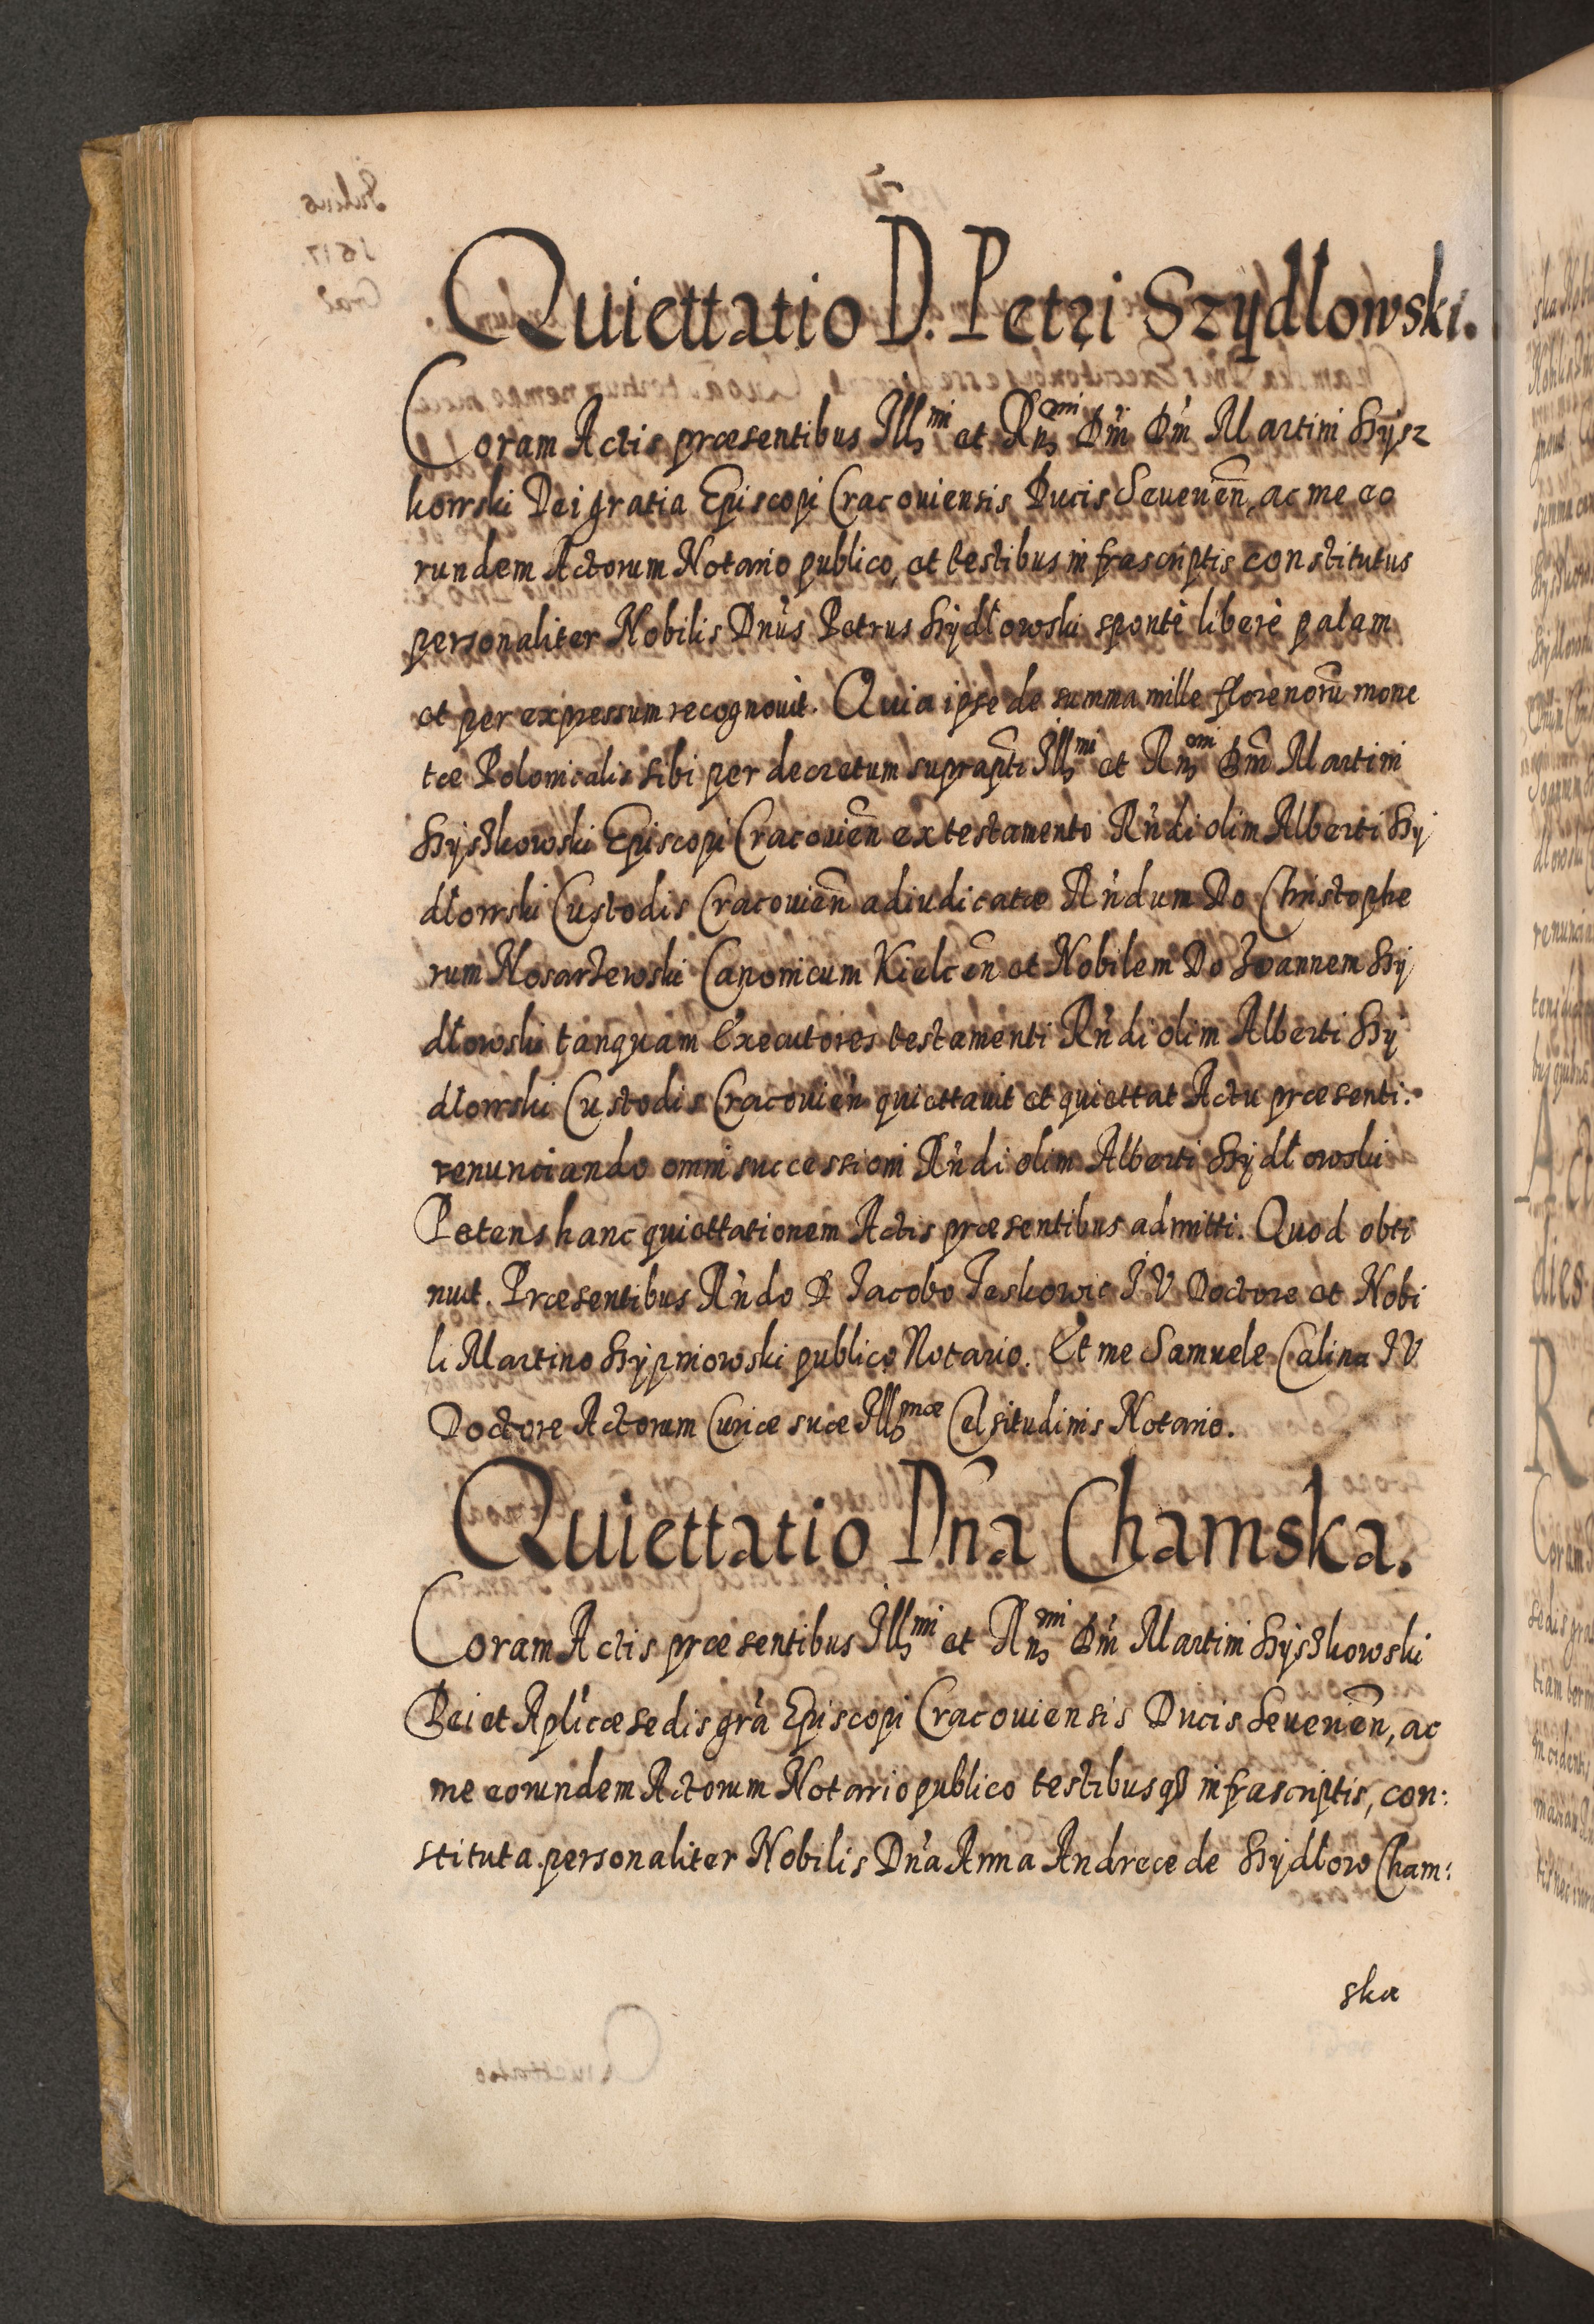 Quiettatio D. Petri Szydłowski.
Coram Actis præsentibus Illmi et Rnmi Dni Dni Martini Szysz
kowski Dei gratia Episcopi Cracouiensis Ducis Seueriēn, ac me eo
rundem Actorum Notario publico, et testibus infrascriptis constitutus
personaliter Nobilis Dnus Petrus Szydłowski spontè liberè palam
et per expressum recognouit. Quia ipse de summa mille florenorū mone
tæ Polonicalis sibi per decretum suprapti Illmi et Rnmi Dni Martini
Szyszkowski Episcopi Cracouiēn ex testamento Rndi olim Alberti Szy
dłowski Custodis Cracouiēn adiudicatæ Rndum Do Christophe
rum Nosarzewski Canonicum Kielcēn et Nobilem Do Joannem Szy
dłowski tanquam Executores testamenti Rndi olim Alberti Szy
dłowski Custodis Cracouień quiettauit et quiettat Actu præsenti:
renunciando omni successioni Rndi olim Alberti Szydłowski
Petens hanc quiettationem Actis præsentibus admitti. Quod obti
nuit. Præsentibus Rndo D Jacobo Jaskowic J.V Doctore et Nobi
li Martino Szypniowski publico Notario. Et me Samuele Calina JV
Doctore Actorum Curiæ suæ Illmæ Celsitudinis Notario.
Quiettatio Dna Chamska.
Coram Actis præsentibus Illmi et Rnmi Dni Martini Szyszkowski
Dei et Aplicæ sedis gra Episcopi Cracouiensis Ducis Seueriēn, ac
me eorundem Actorum Notario publico testibusq3 infrascriptis, con:
stituta personaliter Nobilis Dna Anna Andreæ de Szydłow Cham:
ska